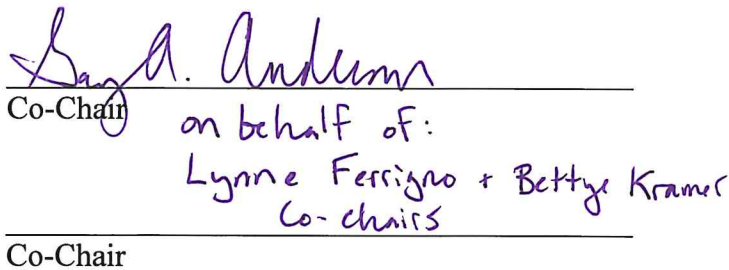 Gary A. Anderson
Co-Chair
on behalf of:
Lynne Ferrigno + Bettye Kramer
Co-chairs
Co-Chair